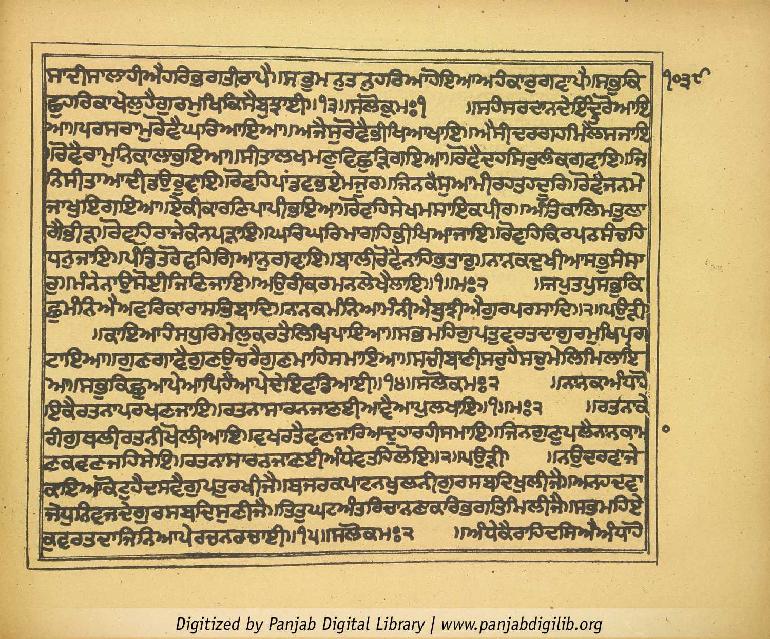 ਸਾਦੀਸਾਲਾਹੀਐਹਰਿਭਗਤੀਰਾਪੈ॥ਸਭੁਮਨੁਤਨੁਹਰਿਆਹੋਇਆਅਹੰਕਾਰੁਗਵਾਪੈ॥ਸਭੁਕਿ ੧੦੩੯
ਛੁਹਰਿਕਾਖੇਲੁਹੈਗੁਰਮੁਖਿਕਿਸੈਬੁਝਾਈ॥੧੩॥ਸਲੋਕੁਮਃ੧ ॥ਸਹੰਸਰਦਾਨਦੇਇੰਦ੍ਰੁਰੋਆਇ
ਆ॥ਪਰਸਰਾਮੁਰੋਵੈਘਰਿਆਇਆ॥ਅਜੈਸੁਰੋਵੈਭੀਖਿਆਖਾਇ॥ਐਸੀਦਰਗਹਮਿਲੈਸਜਾਇ
॥ਰੋਵੈਰਾਮੁਨਿਕਾਲਾਭਇਆ॥ਸੀਤਾਲਖਮਣੁਵਿਛੁੜਿਗਇਆ॥ਰੋਵੈਦਹਸਿਰੁਲੰਕਗਵਾਇ॥ਜਿ
ਨਿਸੀਤਾਆਦੀਡਉਰੂਵਾਇ॥ਰੋਵਹਿਪਾਂਡਵਭਏਮਜੂਰ॥ਜਿਨਕੈਸੁਆਮੀਰਹਤਹਦੂਰਿ॥ਰੋਵੈਜਨਮੇ
ਜਾਖੁਇਗਇਆ॥ਏਕੀਕਾਰਣਿਪਾਪੀਭਇਆ॥ਰੋਵਹਿਸੇਖਮਸਾਇਕਪੀਰ॥ਅੰਤਿਕਾਲਿਮਤੁਲਾ
ਗੈਭੀੜ॥ਰੋਵਹਿਰਾਜੇਕੰਨਪੜਾਇ॥ਘਰਿਘਰਿਮਾਗਹਿਭੀਖਿਆਜਾਇ॥ਰੋਵਹਿਕਿਰਪਨਸੰਚਹਿ
ਧਨੁਜਾਇ॥ਪੰਡਿਤਰੋਵਹਿਗਿਆਨੁਗਵਾਇ॥ਬਾਲੀਰੋਵੈਨਾਹਿਭਤਾਰੁ॥ਨਾਨਕਦੁਖੀਆਸਭੁਸੰਸਾ
ਰੁ॥ਮੰਨੇਨਾਉਸੋਈਜਿਣਿਜਾਇ॥ਅਉਰੀਕਰਮਨਲੇਖੈਲਾਇ॥੧॥ਮਃ੨ ॥ਜਪੁਤਪੁਸਭੁਕਿ
ਛੁਮੰਨਿਐਅਵਰਿਕਾਰਾਸਭਿਬਾਦਿ॥ਨਾਨਕਮੰਨਿਆਮੰਨੀਐਬੁਝੀਐਗੁਰਪਰਸਾਦਿ॥੨॥ਪਉੜੀ
॥ਕਾਇਆਹੰਸਧੁਰਿਮੇਲੁਕਰਤੈਲਿਖਿਪਾਇਆ॥ਸਭਮਹਿਗੁਪਤੁਵਰਤਦਾਗੁਰਮੁਖਿਪ੍ਰਗ
ਟਾਇਆ॥ਗੁਣਗਾਵੈਗੁਣਉਚਰੈਗੁਣਮਾਹਿਸਮਾਇਆ॥ਸਚੀਬਾਣੀਸਚੁਹੈਸਚੁਮੇਲਿਮਿਲਾਇ
ਆ॥ਸਭੁਕਿਛੁਆਪੇਆਪਿਹੈਆਪੇਦੇਇਵਡਿਆਈ॥੧੪॥ਸਲੋਕਮਃ੨ ॥ਨਾਨਕਅੰਧਾਹੋ
ਇਕੈਰਤਨਾਪਰਖਣਜਾਇ॥ਰਤਨਾਸਾਰਨਜਾਣਈਆਵੈਆਪੁਲਖਾਇ॥੧॥ਮਃ੨ ॥ਰਤਨਾਕੇ
ਰੀਗੁਥਲੀਰਤਨੀਖੋਲੀਆਇ॥ਵਖਰਤੈਵਣਜਾਰਿਆਦੁਹਾਰਹੀਸਮਾਇ॥ਜਿਨਗੁਣੁਪਲੈਨਾਨਕਾਮਾ
ਣਕਵਣਜਹਿਸੇਇ॥ਰਤਨਾਸਾਰਨਜਾਣਈਅੰਧੇਵਤਹਿਲੋਇ॥੨॥ਪਉੜੀ ॥ਨਉਦਰਵਾਜੇ
ਕਾਇਆਕੋਟੁਹੈਦਸਵੈਗੁਪਤੁਰਖੀਜੈ॥ਬਜਰਕਪਾਟਨਖੁਲਨੀਗੁਰਸਬਦਿਖੁਲੀਜੈ॥ਅਨਹਦਵਾ
ਜੇਧੁਨਿਵਜਦੇਗੁਰਸਬਦਿਸੁਣੀਜੈ॥ਤਿਤੁਘਟਅੰਤਰਿਚਾਨਣਾਕਰਿਭਗਤਿਮਿਲੀਜੈ॥ਸਭਮਹਿਏ
ਕੁਵਰਤਦਾਜਿਨਿਆਪੇਰਚਨਰਚਾਈ॥੧੫॥ਸਲੋਕਮਃ੨ ॥ਅੰਧੇਕੈਰਾਹਿਦਸਿਐਅੰਧਾਹੋ
Digitized by Panjab Digital Library | www.panjabdigilib.org